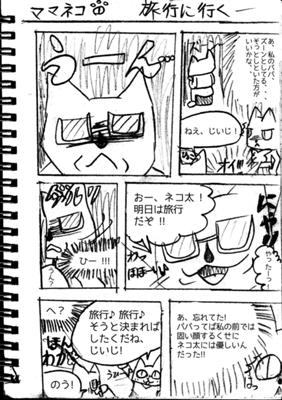 ママネコ 旅行に行く
うーん…
あ、私のパパ、
ズーンとしてる、…
そっとしといた方が
いいかな、
ねえ、じいじ!
オイ!!
ひー!!!
おー、ネコ太!
明日は旅行
だぞ!!
ニヤリ
やったーっ!
わっほほーい
へ?
ほんわか
のう!
旅行♪旅行♪
そうと決まれば
したくだね、
じいじ!
あ、忘れてた!
パパってば私の前では
固い顔するくせに
ネコ太には優しいん
だった!!